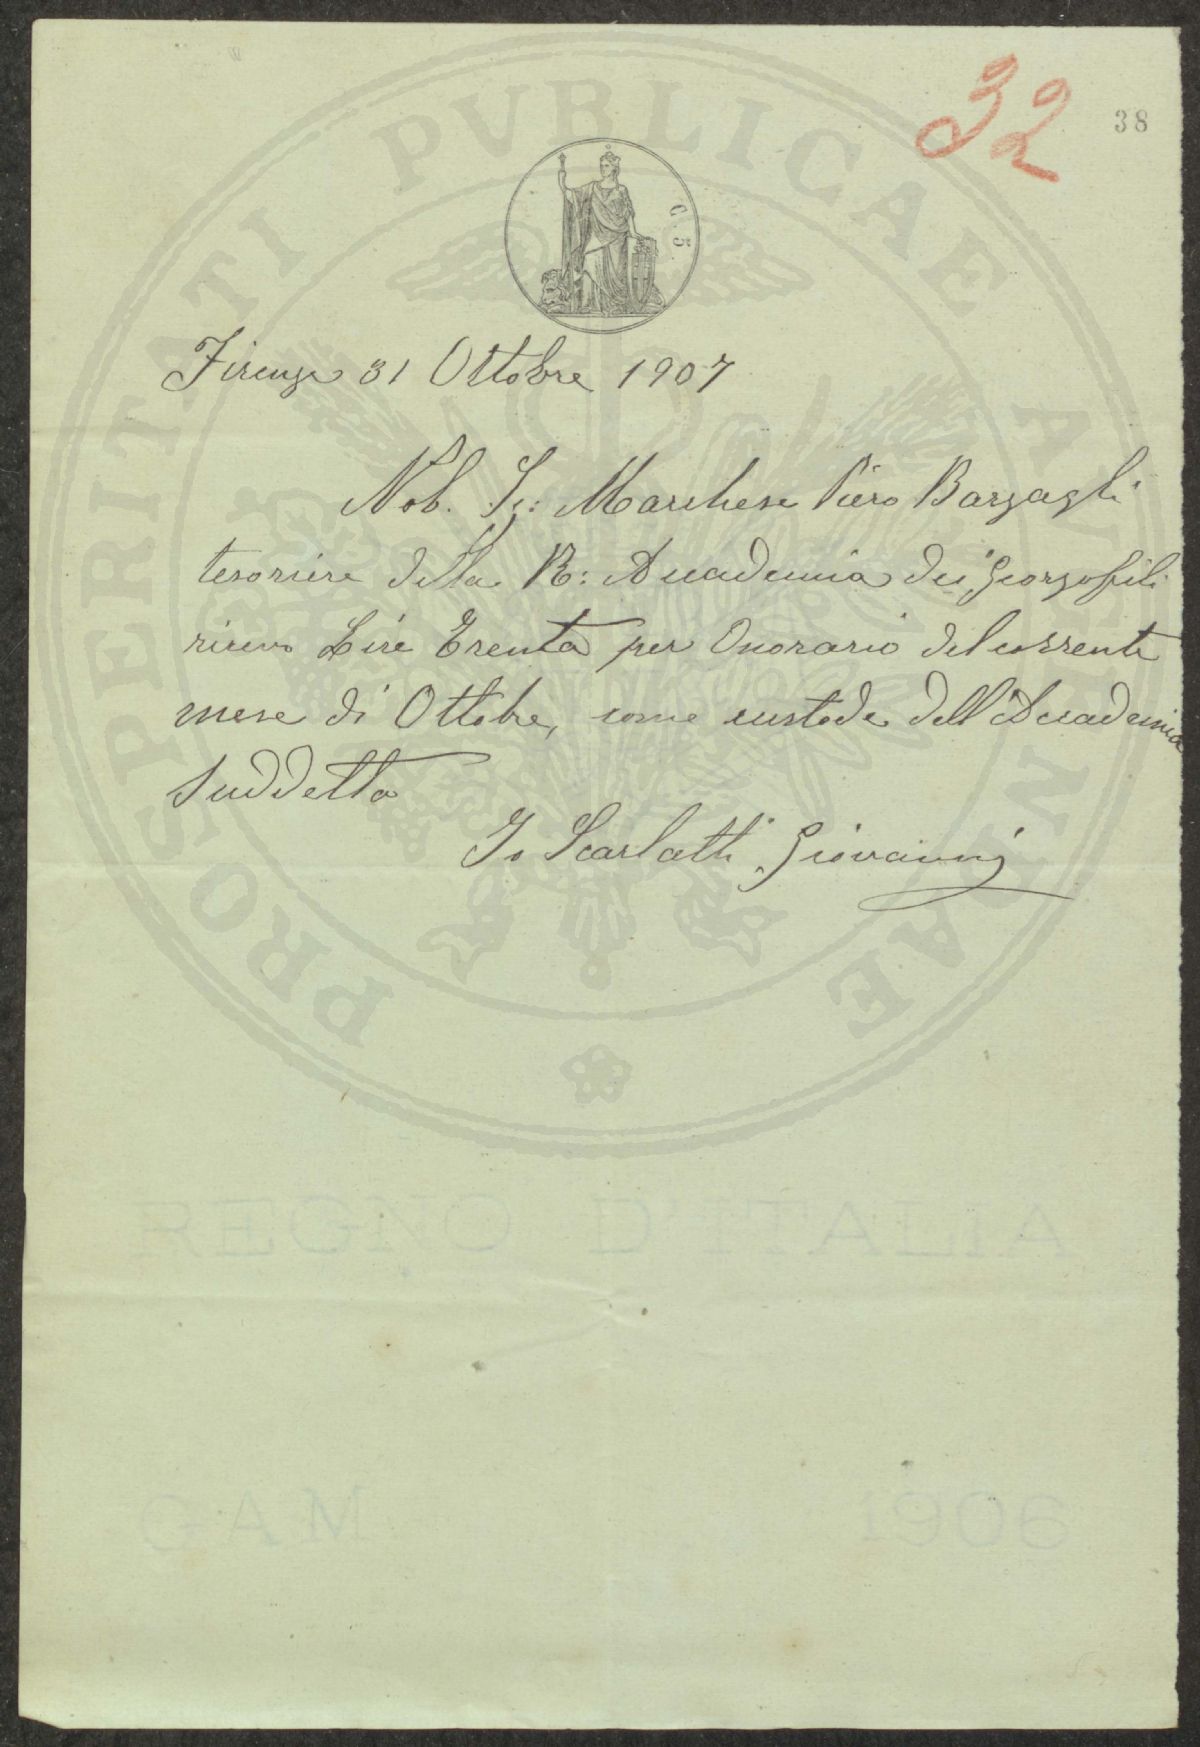 32
38
C. 5
PROSPERITATI PVBLICAE AVGENDAE
Firenze 31 Ottobre 1907
Nob. Sig: Marchese Piero Bargagli
tesoriere della R: Accademia dei Georgofili
ricevo Lire Trenta per Onorario del corrente
mese di Ottobre, come custode dell'Accademia
suddetta
Io Scarlatti Giovanni
REGNO D'ITALIA
GAM 1906